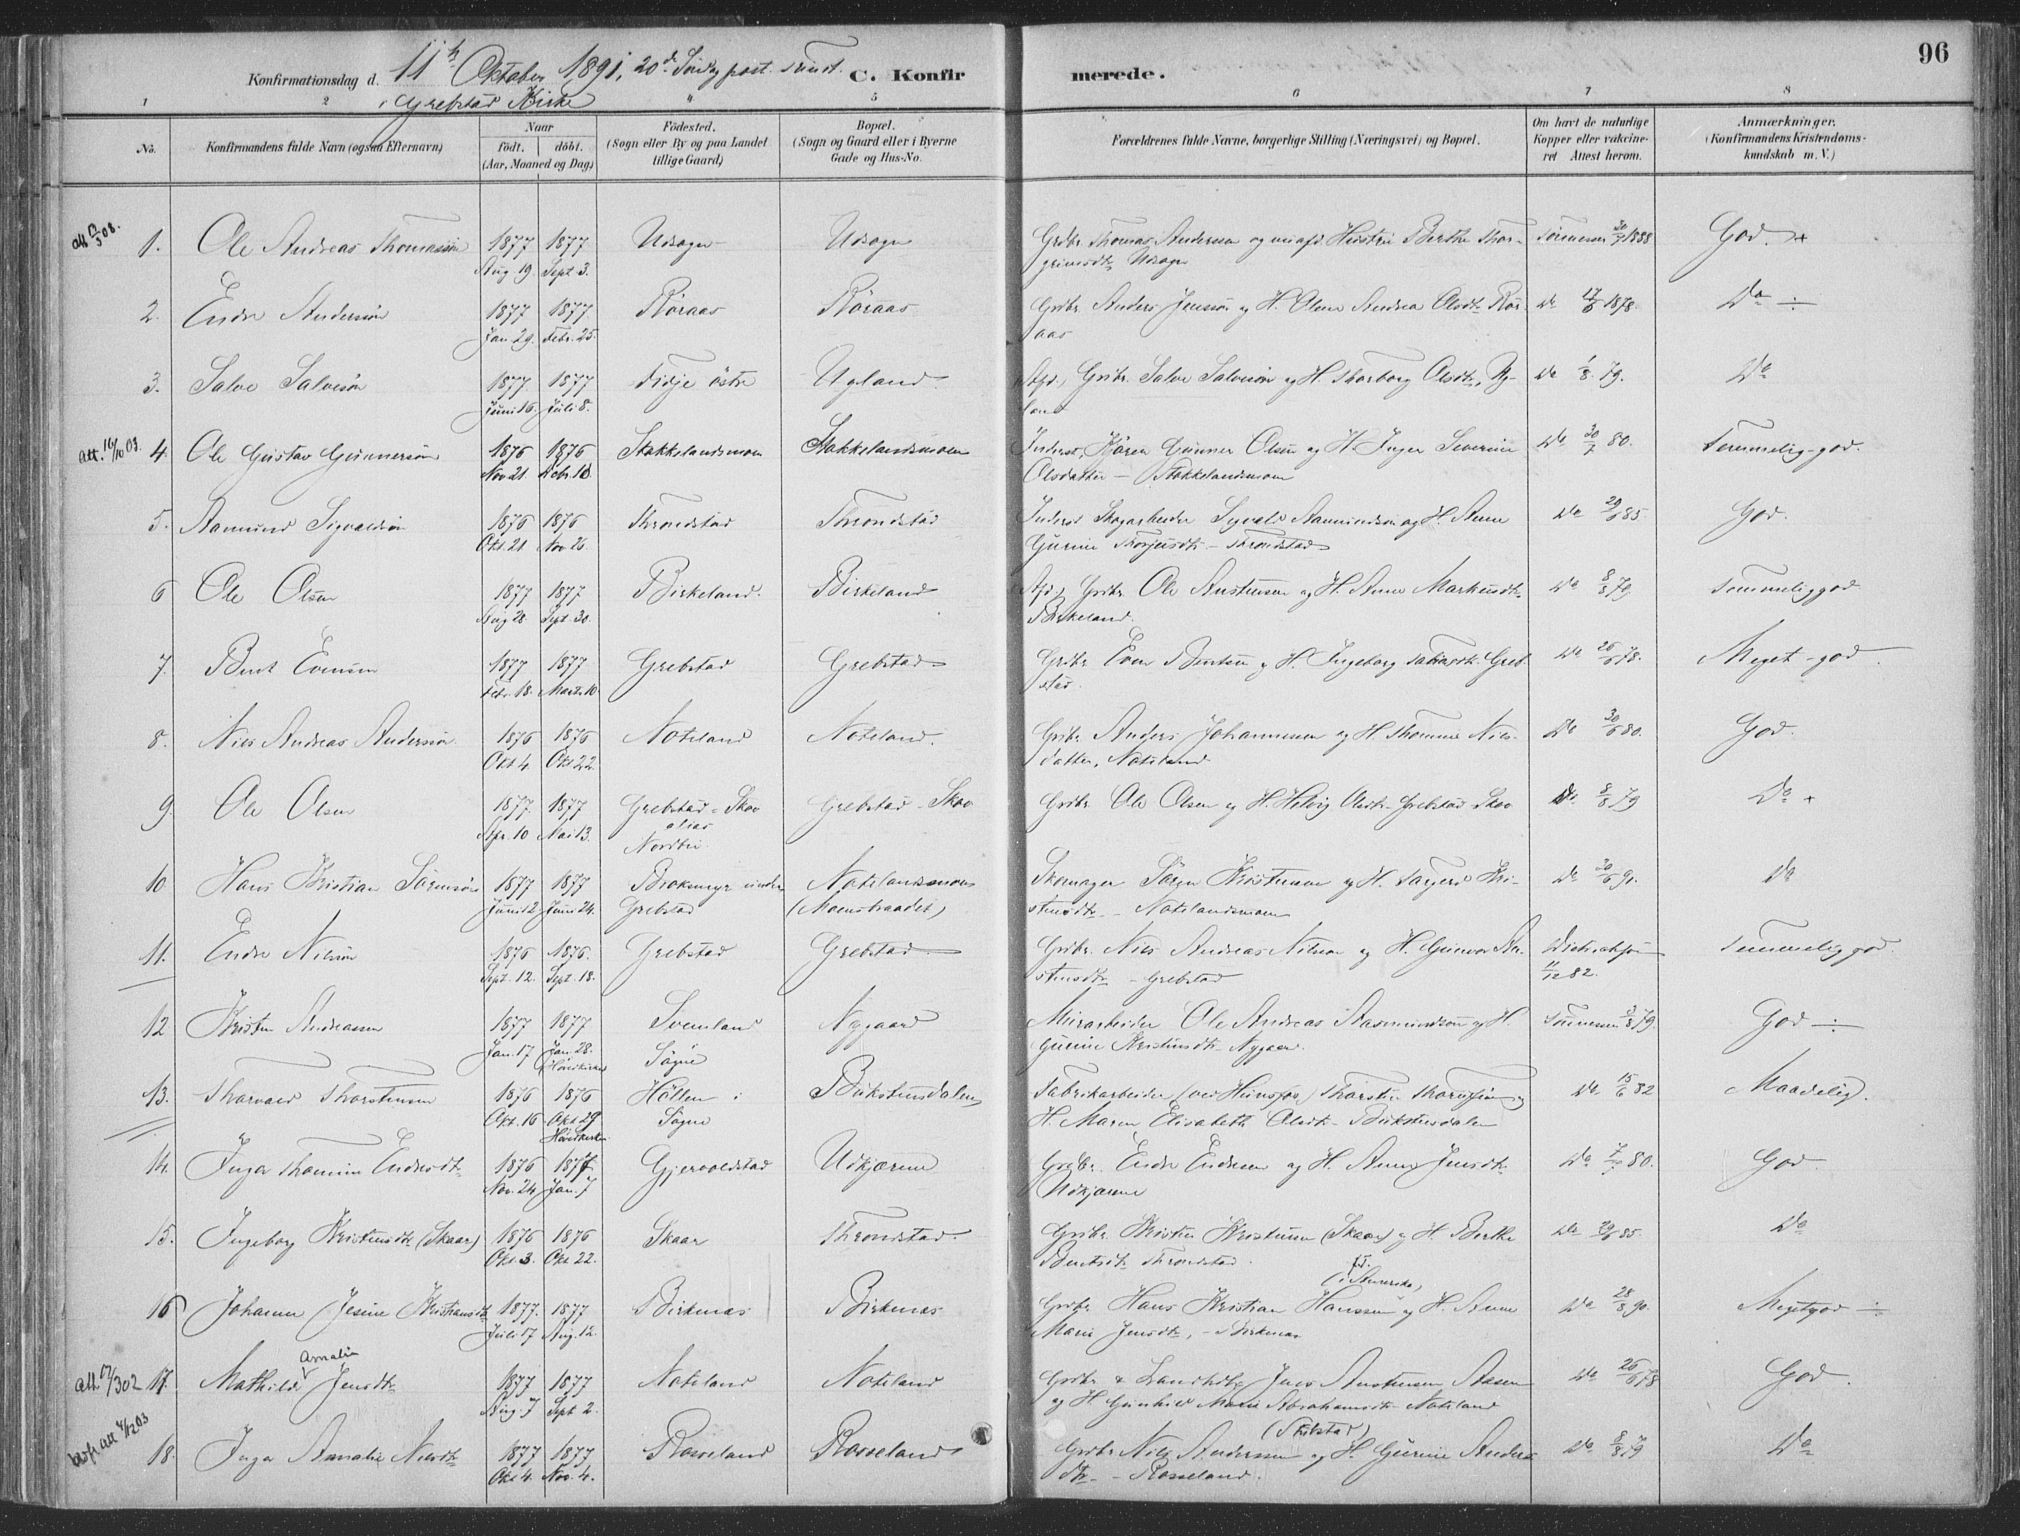 96
Konfirmationsdag d. 11te Oktober 1891, 20de Søndag post. Trinit. C. Konfirmerede.
i Grebstad Kirke
1 2 4 5 6 7 8
No. Konfirmandens fulde Navn (ogsaa Efternavn) Naar födt. döbt. (Aar, Maaned og Dag) Födested. (Sogn eller By og paa Landet tillige Gaard) Bopæl. (Sogn og Gaard eller i Byerne Gade og Hus-No. Forældrenes fulde Navne, borgerlige Stilling (Næringsvei) og Bopæl. Om havt de naturlige Kopper eller vakcineret Attest herom. Anmærkninger. (Konfirmandens Kristendomskundskab m. V.)
1. Ole Andreas Thomassøn 1877 Aug 19. 1877 Sept 3. Udsogn Udsogn Grdbr. Thomas Anderssen og Hustru Berthe Thorgrimsdtr Udsogn Tønnessen 1888 God. +
2. Endre Anderssøn 1877 Jan 29. 1877. Febr. 25. Røraas Røraas Grdbr. Anders Jenssøn og H. Olene Andrea Olsdtr Røraas Do 1878. Do ÷
3. Salve Salvesøn 1877 Juni 16. 1877 Juli 8. Fidje östre Ugland Afd. Grdbr. Salve Salvesøn og H. Thorborg Olsdtr, Ugland Do 1/8 79. Do
Att. 16/10 03. 4. Ole Gustav Gunnersøn 1876 Nov 21. 1876 Stokkelandsmoen Stokkelandsmoen Inderst, Gunner Olsen og H. Inger Severine Olsdatter - Stokkelandsmoen Do 30/7 80. Temmelig-god.
5. Aamund Sigvaldsøn 1876 Okt. 21 1876 Nov 26. Throndstad Throndstad Inderst Skogarbeider Sigvald Aamundsøn og H. Anne Gurine Thorjusdtr - Throndstad Do 85. God.
6 Ole Olsen 1877 Aug 28 1877 Sept. 30. Birkeland. Birkeland Afd. Grdbr. Ole Austensen og H. Anne Markusdtr. Birkeland. Do 8/8 79 Temmelig god
7. Bent Evensen 1877 Febr. 18. 1877. Marts 10. Grebstad Grebstad Grdbr. Even Bentsen og H. Ingeborg Grebstad. Do 26/6 78. Meget-god
8. Nils Andreas Anderssøn. 1876 Okt 4. 1876 Okt 22. Noteland Noteland. Grdbr. Anders Johannessen og H. Thomine Nilsdatter, Noteland Do 30/6 80. God.
9. Ole Olsen 1877. Apr. 10 1877 Mai 13. Grebstad-Skov alias Nordbu Grebstad-Skov Grdbr. Ole Olsen og H. Helvig Olsdtr. Grebstad Skov Do 8/8 79 Do +
10 Hans Kristian Sørensøn 1877 Juni 2 1877 Juni 24. under Grebstad Notelandsmoen (Moensbraadet) Skomager Søren Kristensen og H. Targerd Kristensdtr. - Notelandsmoen Do 90. Do
11. Endre Nilssøn 1876 Sept. 12. 1876. Sept. 18. Grebstad Grebstad Grdbr. Nils Andreas Nilsen og H. Gunvor Austensdtr - Grebstad 11/12 82. Temmelig god.
12 Kristen Andreassen 1877 Jan. 17 1877 Jan. 28. Svenland Søgne Nygaard Murarbeider Ole Andreas Aasmundsøn og H. Gurine Kristensdtr. Nygaard. Tønnessen 79. God ÷
13. Thorvald Thorstensen 1876 Okt. 16 1876 Okt 29 Høllen i Søgne Bukstensdalen Fabrikarbeider (ved Hunsfos) Thorsten og H. Maren Elisabeth Olsdtr. - Bukstensdalen Do 15/6 82 Maadelig.
14. Inga Thomine Endresdtr. 1876 Nov. 24 1877 Jan. 7 Gjervoldstad Udkjærene Grdbr. Endre Endresen og H. Anne Jensdtr. Udkjærene Do 80. God
15. Ingeborg Kristensdtr (Skaar) 1876 Okt. 3. 1876 Okt 22. Skaar Throndstad. Grdbr. Kristen Kristensen (Skaar) og H. Berthe Bentsdtr. Throndstad. Do 85. Do
16 Johanne Jesine Kristiansdtr 1877. Juli 17 1877 Aug. 12. Birkenæs Birkenæs Grdbr. Hans Kristian Hanssen og H. Anne Marie Jensdtr, - Birkenæs Do 28/8 90. Megetgod ÷
Att. 17/3 02 17. Mathilde Amalie Jensdtr. 1877 Aug. 7 1877 Sept 2. Noteland Noteland Grdbr. & Landhdlr. Jens Austensen Aasen og H. Gunhild Marie Abrahamsdtr. Noteland Do 26/6 78 God.
att 4/12 03 18. Inga Amalie Nilsdtr 1877 Okt 4. 1877 Nov. 4. Rosseland Rosseland Grdbr. Nils Anderssen og H. Gurine Andersdtr. - Rosseland. Do 8/8 79 Do